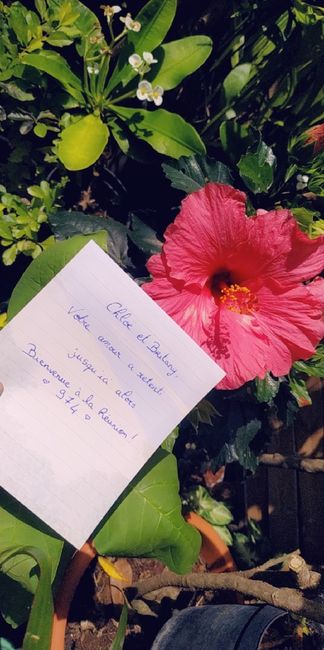 Chloé et Bertany,
Votre amour a retenti
jusqu'ici alors
Bienvenue à la Réunion !
♡ 974 ♡